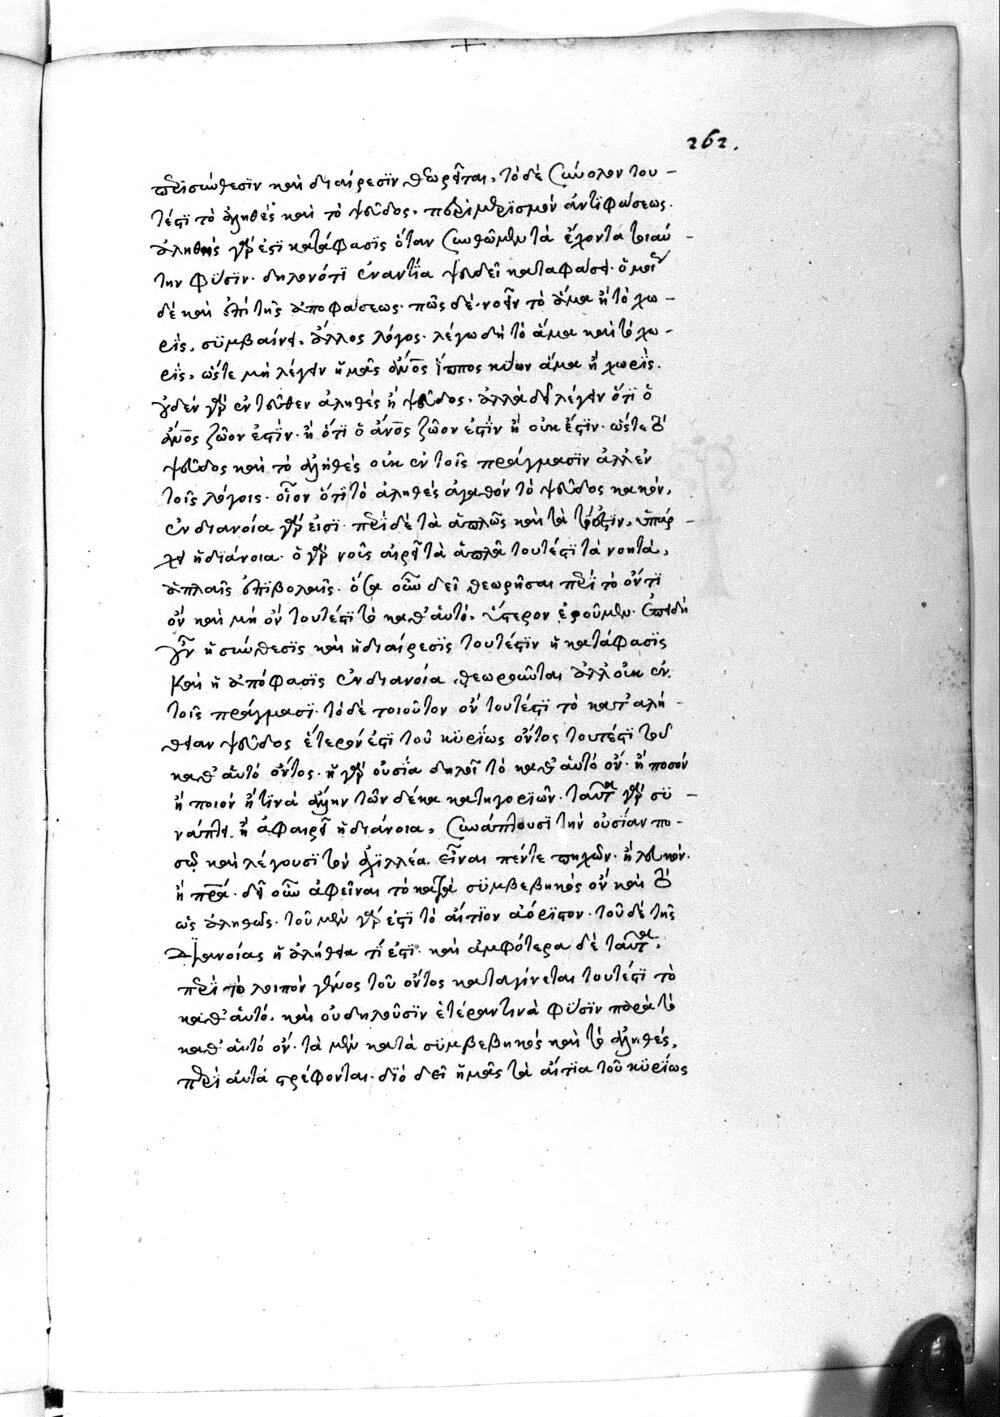 262.
περὶ σύνθεσϊν καὶ διαίρεσϊν θεωρεῖται, τὸ δὲ σύνολον του-
τέστι τὸ ἀληθὲς καὶ τὸ ψεῦδος, περὶ μερισμὸν ἀντιφάσεως.
ἀληθὴς γάρ ἐστι κατάφασϊς ὅταν συνθῶμεν τὰ ἔχοντα τοιαύ-
την φύσϊν. δηλονότϊ ἐναντία ψευδεῖ καταφάσει. ὁμοίως
δὲ καὶ ἐπὶ τῆς ἀποφάσεως. πῶς δὲ νοεῖν τὸ ἅμα ἢ τὸ χω-
ρϊς, συμβαίνει, ἄλλος λόγος. λέγω δὴ τὸ ἅμα καὶ τὸ χω-
ρϊς, ὥστε μὴ λέγειν ἡμᾶς ἄνος ἵππος κύων ἅμα ἢ χωρὶς.
οὐδὲν γὰρ ἐντεῦθεν ἀληθὲς ἢ ψεῦδος. ἀλλὰ δεῖ λέγειν ὅτϊ ὁ
ἄνος ζῶον ἐστϊν. ἢ ὅτϊ ὁ ἄνος ζῶον ἐστϊν ἢ οὐκ ἔστϊν. ὥστε τὸ
ψεῦδος καὶ τὸ ἀληθὲς οὐκ ἐν τοῖς πράγμασϊν ἀλλ' ἐν
τοῖς λόγοις. οἷον ὅτϊ τὸ ἀληθὲς ἀγαθόν τὸ ψεῦδος κακόν,
ἐν διανοία γάρ εἰσϊ. περὶ δὲ τὰ ἁπλῶς καὶ τὰ τί ἐστϊν, ὑπάρ-
χει ἡ διάνοια. ὁ γὰρ νοῦς αἱρεῖ τὰ ἁπλᾶ τουτέστϊ τὰ νοητὰ,
ἁπλαῖς ἐπιβολαῖς. ὅσα οὖν δεῖ θεωρῆσαι περὶ τὸ οὕτϊ
ὂν καὶ μὴ ὂν τουτέστϊ τὸ καθ' αὑτὸ, ὕστερον ἐροῦμεν. ἐπειδὴ
γοῦν ἡ σύνθεσϊς καὶ ἡ διαίρεσϊς τουτέστϊν ἡ κατάφασϊς
καὶ ἡ ἀπόφασϊς ἐν διανοία θεωροῦνται ἀλλ' οὐκ ἐν
τοῖς πράγμασϊ. τὸ δὲ τοιοῦτον ὂν τουτέστϊ τὸ κατ' ἀλή-
θειαν ψεῦδος ἕτερόν ἐστϊ τοῦ κυρίως ὄντος τουτέστϊ τοῦ
καθ' αὑτὸ ὄντος. ἢ γὰρ οὐσία δηλοῖ τὸ καθ' αὑτὸ ὂν. ἢ ποσόν
ἢ ποιὸν ἢ τϊνὰ ἄλλην τῶν δέκα κατηγορϊῶν. ταῦτα γὰρ συ-
νάπτει ἢ ἀφαιρεῖ ἡ διάνοια, συνάπτουσϊ τὴν οὐσίαν πο-
σῷ καὶ λέγουσϊ τὸν ἀχιλλέα εἶναι πέντε πηχῶν. ἢ λευκόν.
δεῖ οὖν ἀφεῖναι τὸ κατὰ συμβεβηκὸς ὂν καὶ τὸ
ὡς ἀληθῶς. τοῦ μὲν γάρ ἐστϊ τὸ αἴτϊον ἀόρϊστον. τοῦ δὲ τῆς
διανοίας ἡ ἀλήθεια τί ἐστϊ. καὶ ἀμφότερα δὲ ταῦτα,
περὶ τὸ λοιπὸν γένος τοῦ ὄντος καταγίνεται τουτέστϊ τὸ
καθ' αὑτὸ. καὶ οὐ δηλοῦσϊν ἑτέραν τϊνὰ φύσϊν παρὰ τὸ
καθ' αὑτὸ ὄν. τὰ μὲν κατὰ συμβεβηκὸς καὶ τὸ ἀληθὲς,
περὶ αὐτὰ στρέφονται. διὸ δεῖ ἡμᾶς τὰ αἴτϊα τοῦ κυρίως